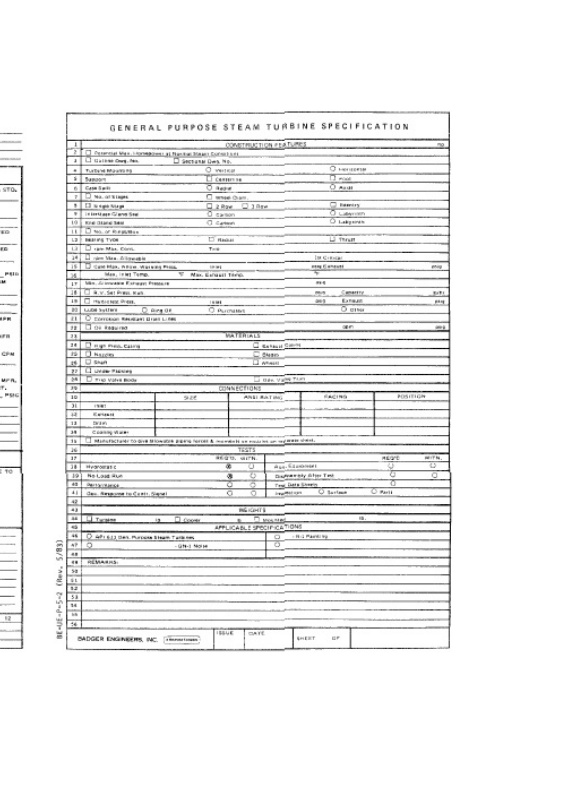 GENERAL PURPOSE STEAM TURBINE SPECIFICATION
1 CONSTRUCTION FEATURES
2 Potential Max. Horsepower at Normal Steam Conditions
3 Outline Dwg. No. Sectional Dwg. No.
4 Turbine Mounting Vertical Horizontal
5 Support Centerline Foot
6 Case Split Radial Axial
7 No. of Stages Wheel Diam.
8 Single Stage 2 Row 3 Row Reentry
9 Interstage Gland Seal Carbon Labyrinth
10 End Gland Seal Carbon Labyrinth
11 No. of Rings/Box
12 Bearing Type Radial Thrust
13 rpm Max. Cont. Trip
14 rpm Max. Allowable 1st Critical
15 Case Max. Allow. Working Press. Inlet psig Exhaust psig
16 Max. Inlet Temp. °F Max. Exhaust Temp. °F
17 Max. Allowable Exhaust Pressure psig
18 R.V. Set Press. Exh. psig Capacity
19 Hydrotest Press. Inlet psig Exhaust psig
20 Lube System Ring Oil Purchaser Other
21 Corrosion Resistant Drain Lines
22 Oil Required gpm psig
23 MATERIALS
24 High Press. Casing Exhaust Casing
25 Nozzles Blades
26 Shaft Wheel
27 Under Plating
28 Trip Valve Body Gov. Valve Trim
29 CONNECTIONS
30 SIZE ANSI RATING FACING POSITION
31 Inlet
32 Exhaust
33 Drain
34 Cooling Water
35 Manufacturer to give allowable piping forces & moments
36 TESTS
37 REQ'D. WITN. REQ'D WITN.
38 Hydrostatic Aux. Equipment
39 No Load Run Disassembly After Test
40 Performance
41 Gov. Response to Contr. Signal Inspection Surface Parts
42
43 WEIGHTS
44 Turbine lb Cover lb Mounted lb.
45 APPLICABLE SPECIFICATIONS
46 API 611 Gen. Purpose Steam Turbines -N-1 Painting
47 -GN-1 Noise
48
49 REMARKS:
50
51
52
53
54
55
56
BADGER ENGINEERS, INC. ISSUE DATE SHEET OF
BE-UE-P-5-2 (Rev. 5/83)